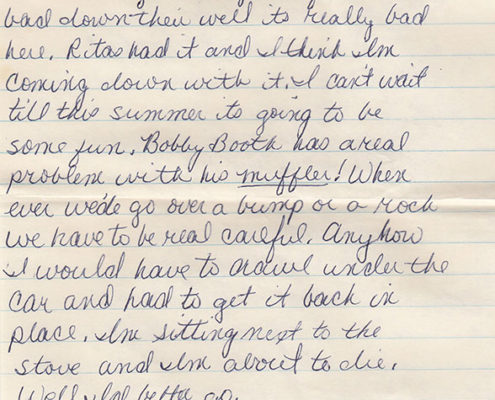 bad down their well its really bad
here. Ritas had it and I think Im
coming down with it. I can't wait
till this summer its going to be
some fun. Bobby Booth has a real
problem with his muffler! When
ever we'de go over a bump or a rock
we have to be real careful. Anyhow
I would have to crawl under the
car and had to get it back in
place. Im sitting next to the
stove and Im about to die.
Well I'd betta go.